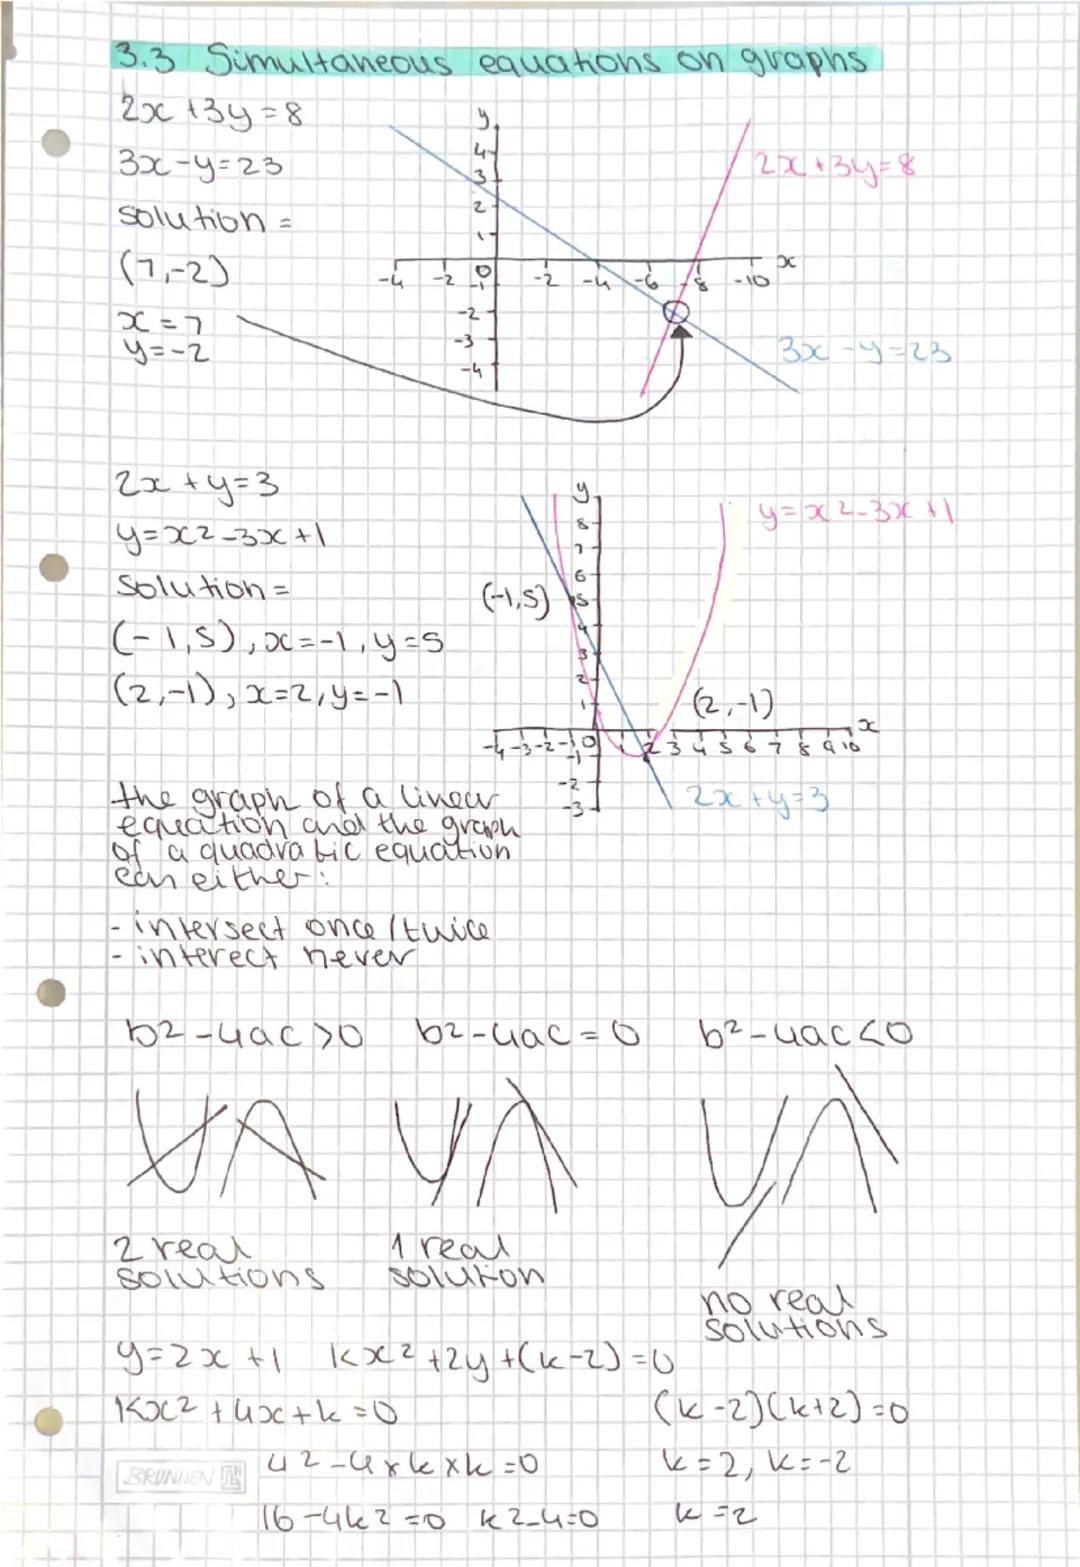 3.3 Simultaneous equations on graphs
2x + 3y = 8
3x - y = 23
solution =
(7,-2)
x = 7
y = -2
y
4
3
2
1
0
-1
-2
-3
-4
-4 -2 -2 -4 -6 -8 -10 x
2x + 3y = 8
3x - y = 23
2x + y = 3
y = x2 - 3x + 1
solution =
(-1,5), x = -1, y = 5
(2,-1), x = 2, y = -1
y
8
7
6
5
4
3
2
1
-1
-2
-3
-4 -3 -2 -1 0 1 2 3 4 5 6 7 8 9 10 x
y = x2 - 3x + 1
(-1,5)
(2,-1)
2x + y = 3
the graph of a linear
equation and the graph
of a quadratic equation
can either:
- intersect once/twice
- interect never
b2 - 4ac > 0 b2 - 4ac = 0 b² - 4ac < 0
2 real
solutions
1 real
solution
no real
solutions
y = 2x + 1 kx² + 2y + (k-2) = 0
kx2 + 4x + k = 0 (k-2)(k+2) = 0
42 - 4 x k x k = 0 k = 2, k = -2
BRUNNEN
16 - 4k2 = 0 k2 - 4 = 0 k = 2